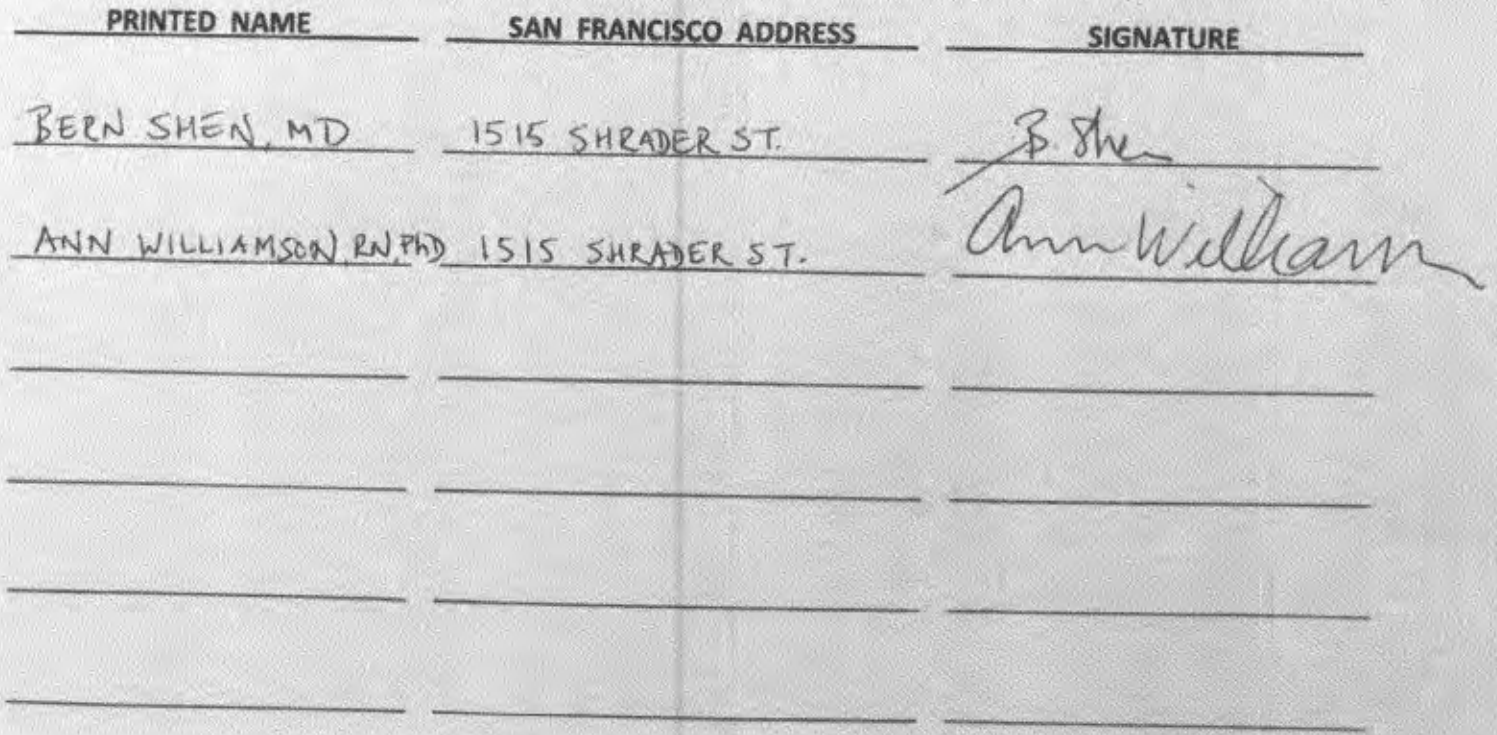 PRINTED NAME SAN FRANCISCO ADDRESS SIGNATURE
BERN SHEN, MD 1515 SHRADER ST. B. Shen
ANN WILLIAMSON, RN, PhD 1515 SHRADER ST. Ann Williamson